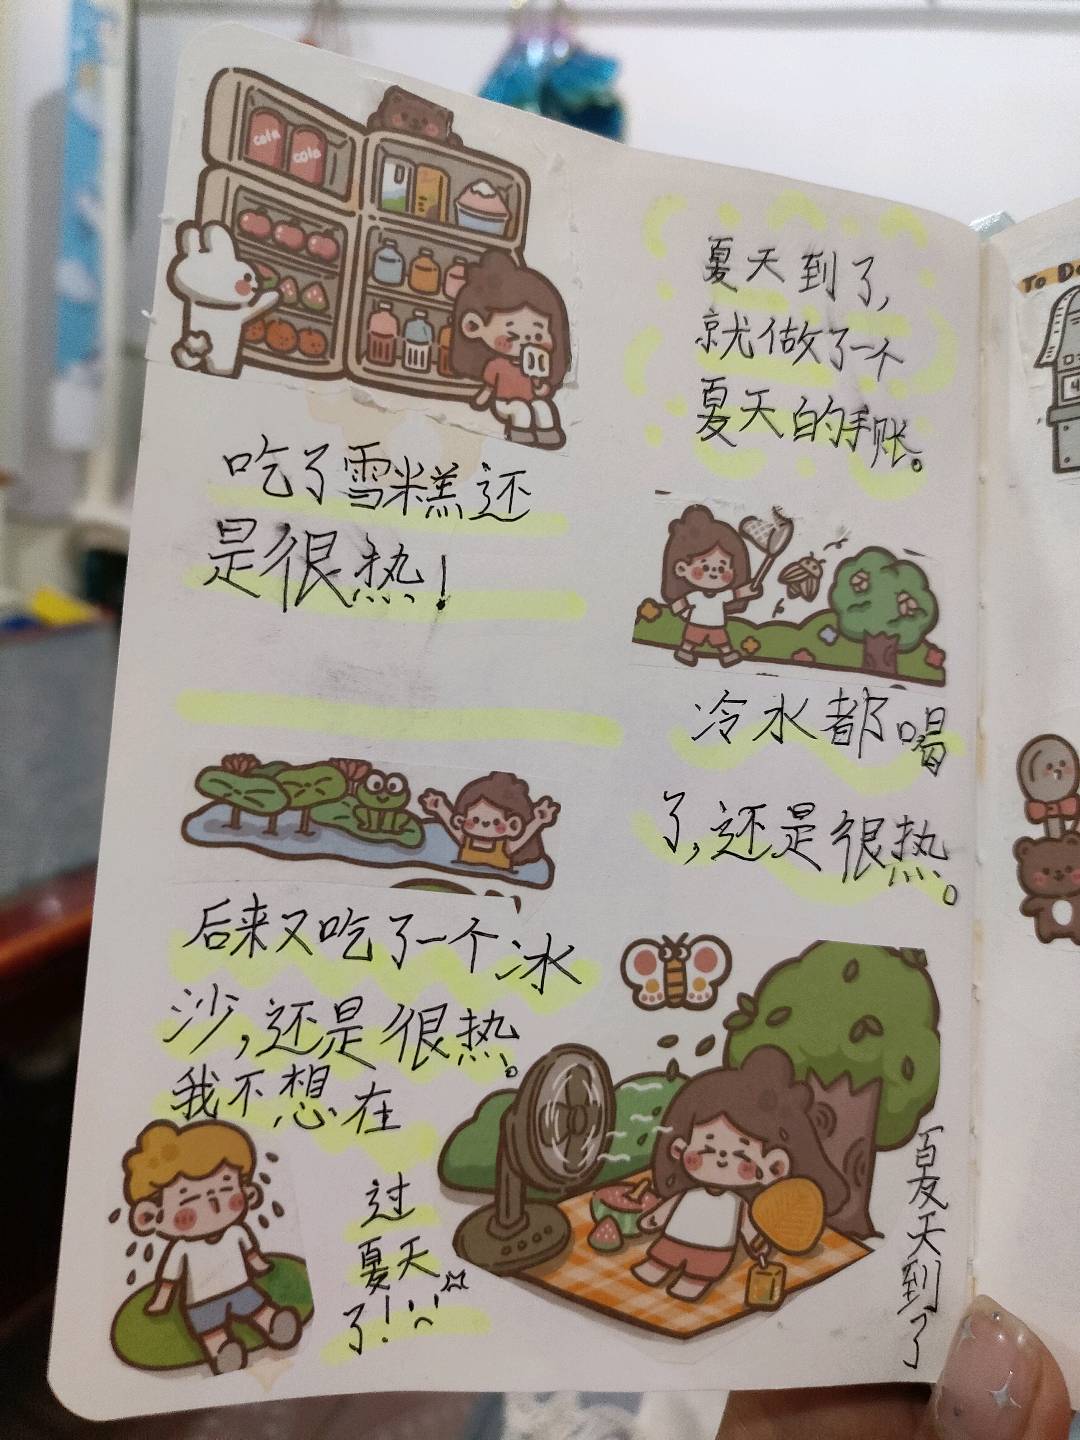 cola
cola
夏天到了，
就做了一个
夏天的手账。
吃了雪糕还
是很热！
冷水都喝
了，还是很热。
后来又吃了一个冰
沙，还是很热。
我不想在
过
夏天
了！
夏天到了
To Do